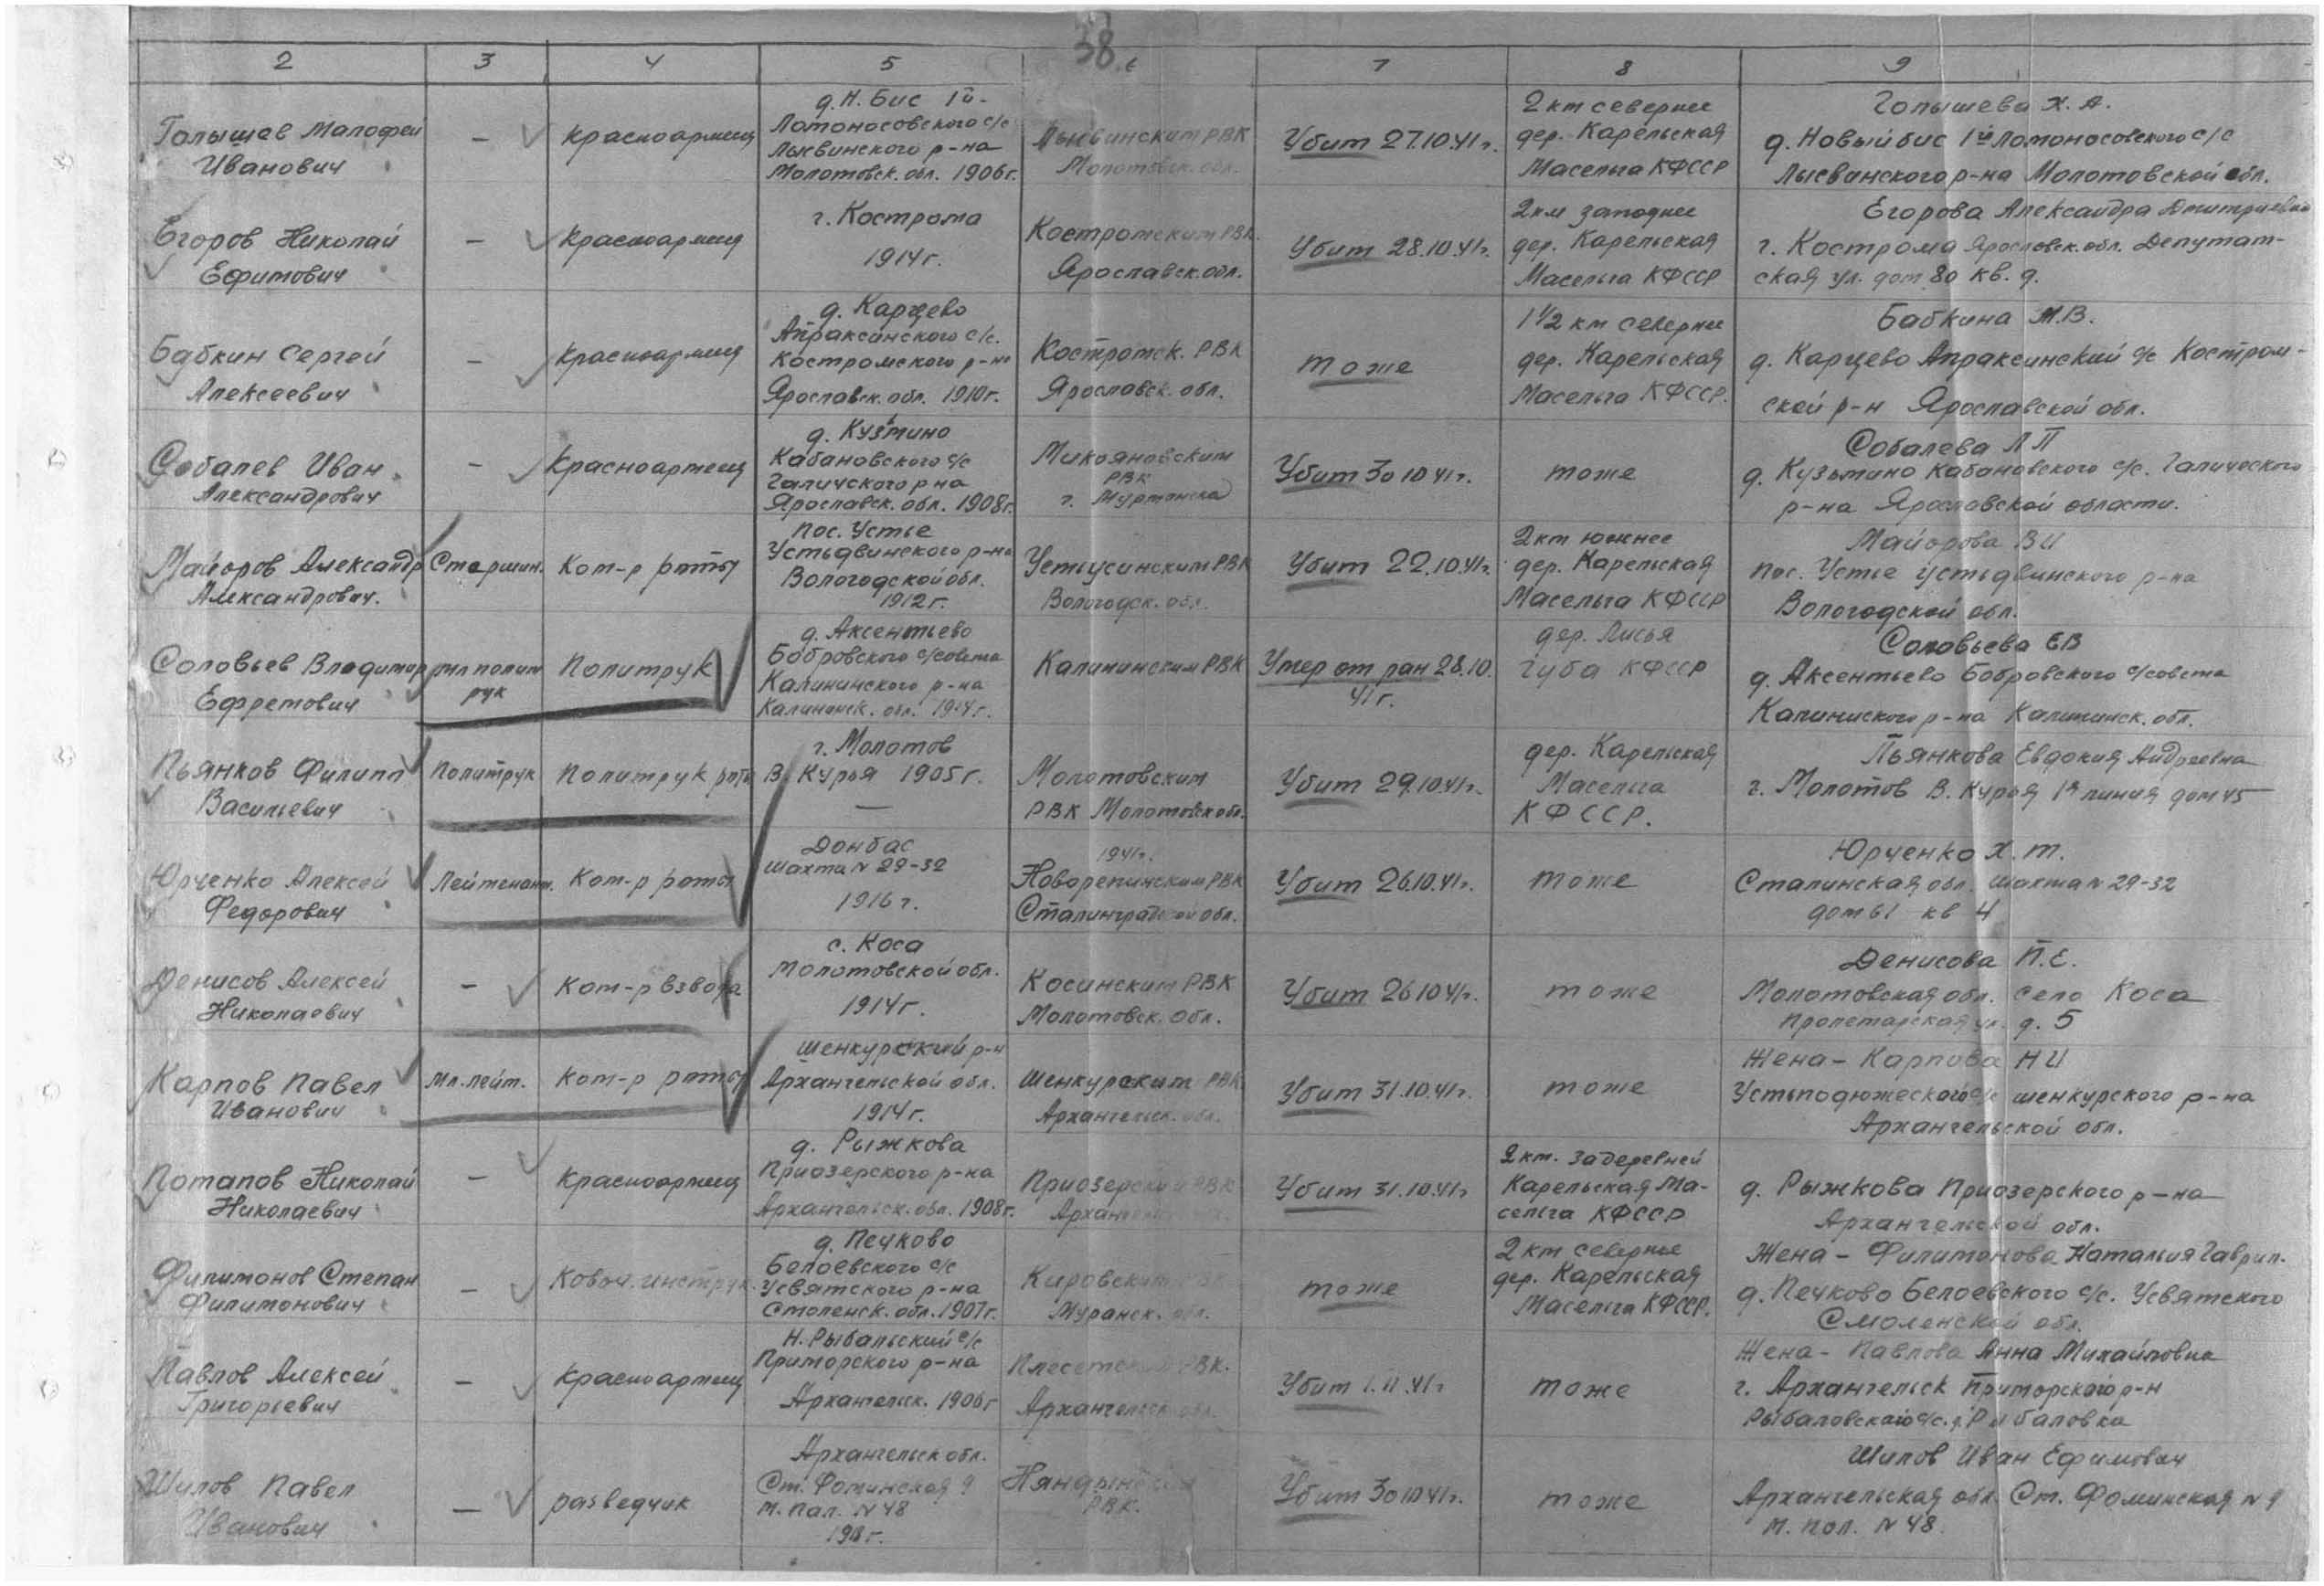 38
2 3 4 5 6 7 8 9
Голышев Малофей
Иванович
—
Красноармеец
д. Н. Бис 1й-
Ломоносовского с/с
Лысвинского р-на
Молотовск. обл. 1906г.
Лысвинским РВК
Молотовск. обл.
Убит 27.10.41г.
2 км севернее
дер. Карельская
Масельга КФССР
Голышева Х. А.
д. Новый бис 1й Ломоносовского с/с
Лысвинского р-на Молотовской обл.
Егоров Николай
Ефимович
—
Красноармеец
г. Кострома
1914 г.
Костромским РВК
Ярославск. обл.
Убит 28.10.41г.
2 км западнее
дер. Карельская
Масельга КФССР
Егорова Александра Дмитриевна
г. Кострома Ярославск. обл. Депутат-
ская ул. дом 80 кв. 9.
Бабкин Сергей
Алексеевич
—
Красноармеец
д. Карцево
Апраксинского с/с.
Костромского р-на
Ярославск. обл. 1910г.
Костромск. РВК
Ярославск. обл.
тоже
1 1/2 км севернее
дер. Карельская
Масельга КФССР.
Бабкина М.В.
д. Карцево Апраксинский с/с Костром-
ской р-н Ярославской обл.
Собалев Иван
Александрович
—
Красноармеец
д. Кузьмино
Кабановского с/с
Галичского р на
Ярославск. обл. 1908г.
Микояновским
РВК
г. Мурманска
Убит 30 10 41г.
тоже
Собалева Л П
д. Кузьмино Кабановского с/с. Галичского
р-на Ярославской области.
Майоров Александр
Александрович.
Старшин.
Ком-р роты
пос. Устье
Устьдвинского р-на
Вологодской обл.
1912 г.
Устьусинским РВК
Вологодск. обл.
Убит 22.10.41г.
2 км южнее
дер. Карельская
Масельга КФССР
Майорова В И
пос. Устье Устьдвинского р-на
Вологодской обл.
Соловьев Владимир
Ефремович
мл полит
рук
Политрук
д. Аксентьево
Бобровского с/совета
Калининского р-на
Калининск. обл. 1914г.
Калининским РВК
Умер от ран 28.10.
41 г.
дер. Лисья
Губа КФССР
Соловьева ЕВ
д. Аксентьево Бобровского с/совета
Калининского р-на Калининск. обл.
Пьянков Филипп
Васильевич
Политрук
Политрук роты
г. Молотов
В. Курья 1905 г.
—
Молотовским
РВК Молотовск обл.
Убит 29.10.41г.
дер. Карельская
Масельга
КФССР.
Пьянкова Евдокия Андреевна
г. Молотов В. Курья 1я линия дом 45
Юрченко Алексей
Федорович
Лейтенант.
Ком-р роты
Донбас
шахта N 29-32
1916 г.
1941г.
Новорепинским РВК
Сталинградской обл.
Убит 26.10.41г.
тоже
Юрченко Х. т.
Сталинская обл. шахта N 29-32
дом 61 кв 4
Денисов Алексей
Николаевич
—
Ком-р взвода
с. Коса
Молотовской обл.
1914г.
Косинским РВК
Молотовск. обл.
Убит 26 10 41г.
тоже
Денисова П.Е.
Молотовская обл. село Коса
Пролетарская ул. д. 5
Карпов Павел
Иванович
Мл. лейт.
Ком-р роты
Шенкурский р-н
Архангельской обл.
1914 г.
Шенкурским РВК
Архангельск. обл.
Убит 31.10.41г.
тоже
Жена - Карпова Н И
Устьподюжеского с/с шенкурского р-на
Архангельской обл.
Потапов Николай
Николаевич
—
Красноармеец
д. Рыжкова
Приозерского р-на
Архангельск. обл. 1908г.
Приозерским РВК
Убит 31.10.41г
2 км. за деревней
Карельская Ма-
сельга КФССР
д. Рыжкова Приозерского р-на
Архангельской обл.
Филимонов Степан
Филимонович
—
Ковоч. инструк.
д. Печково
Белоевского с/с
Усвятского р-на
Смоленск. обл. 1907г.
Кировским РВК
Муранск. обл.
тоже
2 км севернее
дер. Карельская
Масельга КФССР.
Жена - Филимонова Наталья Гаврил.
д. Печково Белоевского с/с. Усвятского
Смоленской обл.
Павлов Алексей
Григорьевич
—
Красноармеец
Н. Рыбальский с/с
Приморского р-на
Архангельск. 1906г
Плесетским РВК.
Архангельск обл.
Убит 1.11.41г
тоже
Жена - Павлова Анна Михайловна
г. Архангельск Приморского р-н
Рыбаловского с/с. д. Рыбаловка
Шилов Павел
Иванович
—
разведчик
Архангельск обл.
Ст. Фоминская 9
м. пол. N 48
Няндомским
РВК.
Убит 30 10 41г.
тоже
Шилов Иван Ефимович
Архангельская обл. Ст. Фоминская N 9
м. пол. N 48.